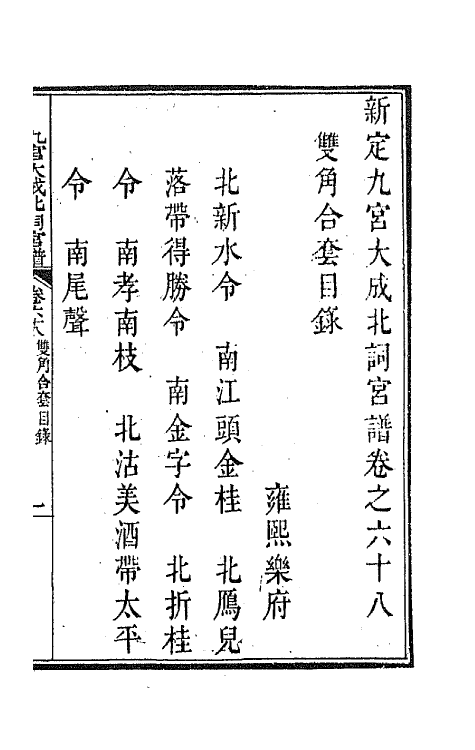 新定九宮大成北詞宮譜卷之六十八
雙角合套目錄
雍熙樂府
北新水令　南江頭金桂　北鴈兒
落帶得勝令　南金字令　北折桂
令　南孝南枝　北沽美酒帶太平
令　南尾聲
九宮大成北詞宮譜　卷六八　雙角合套目錄　一